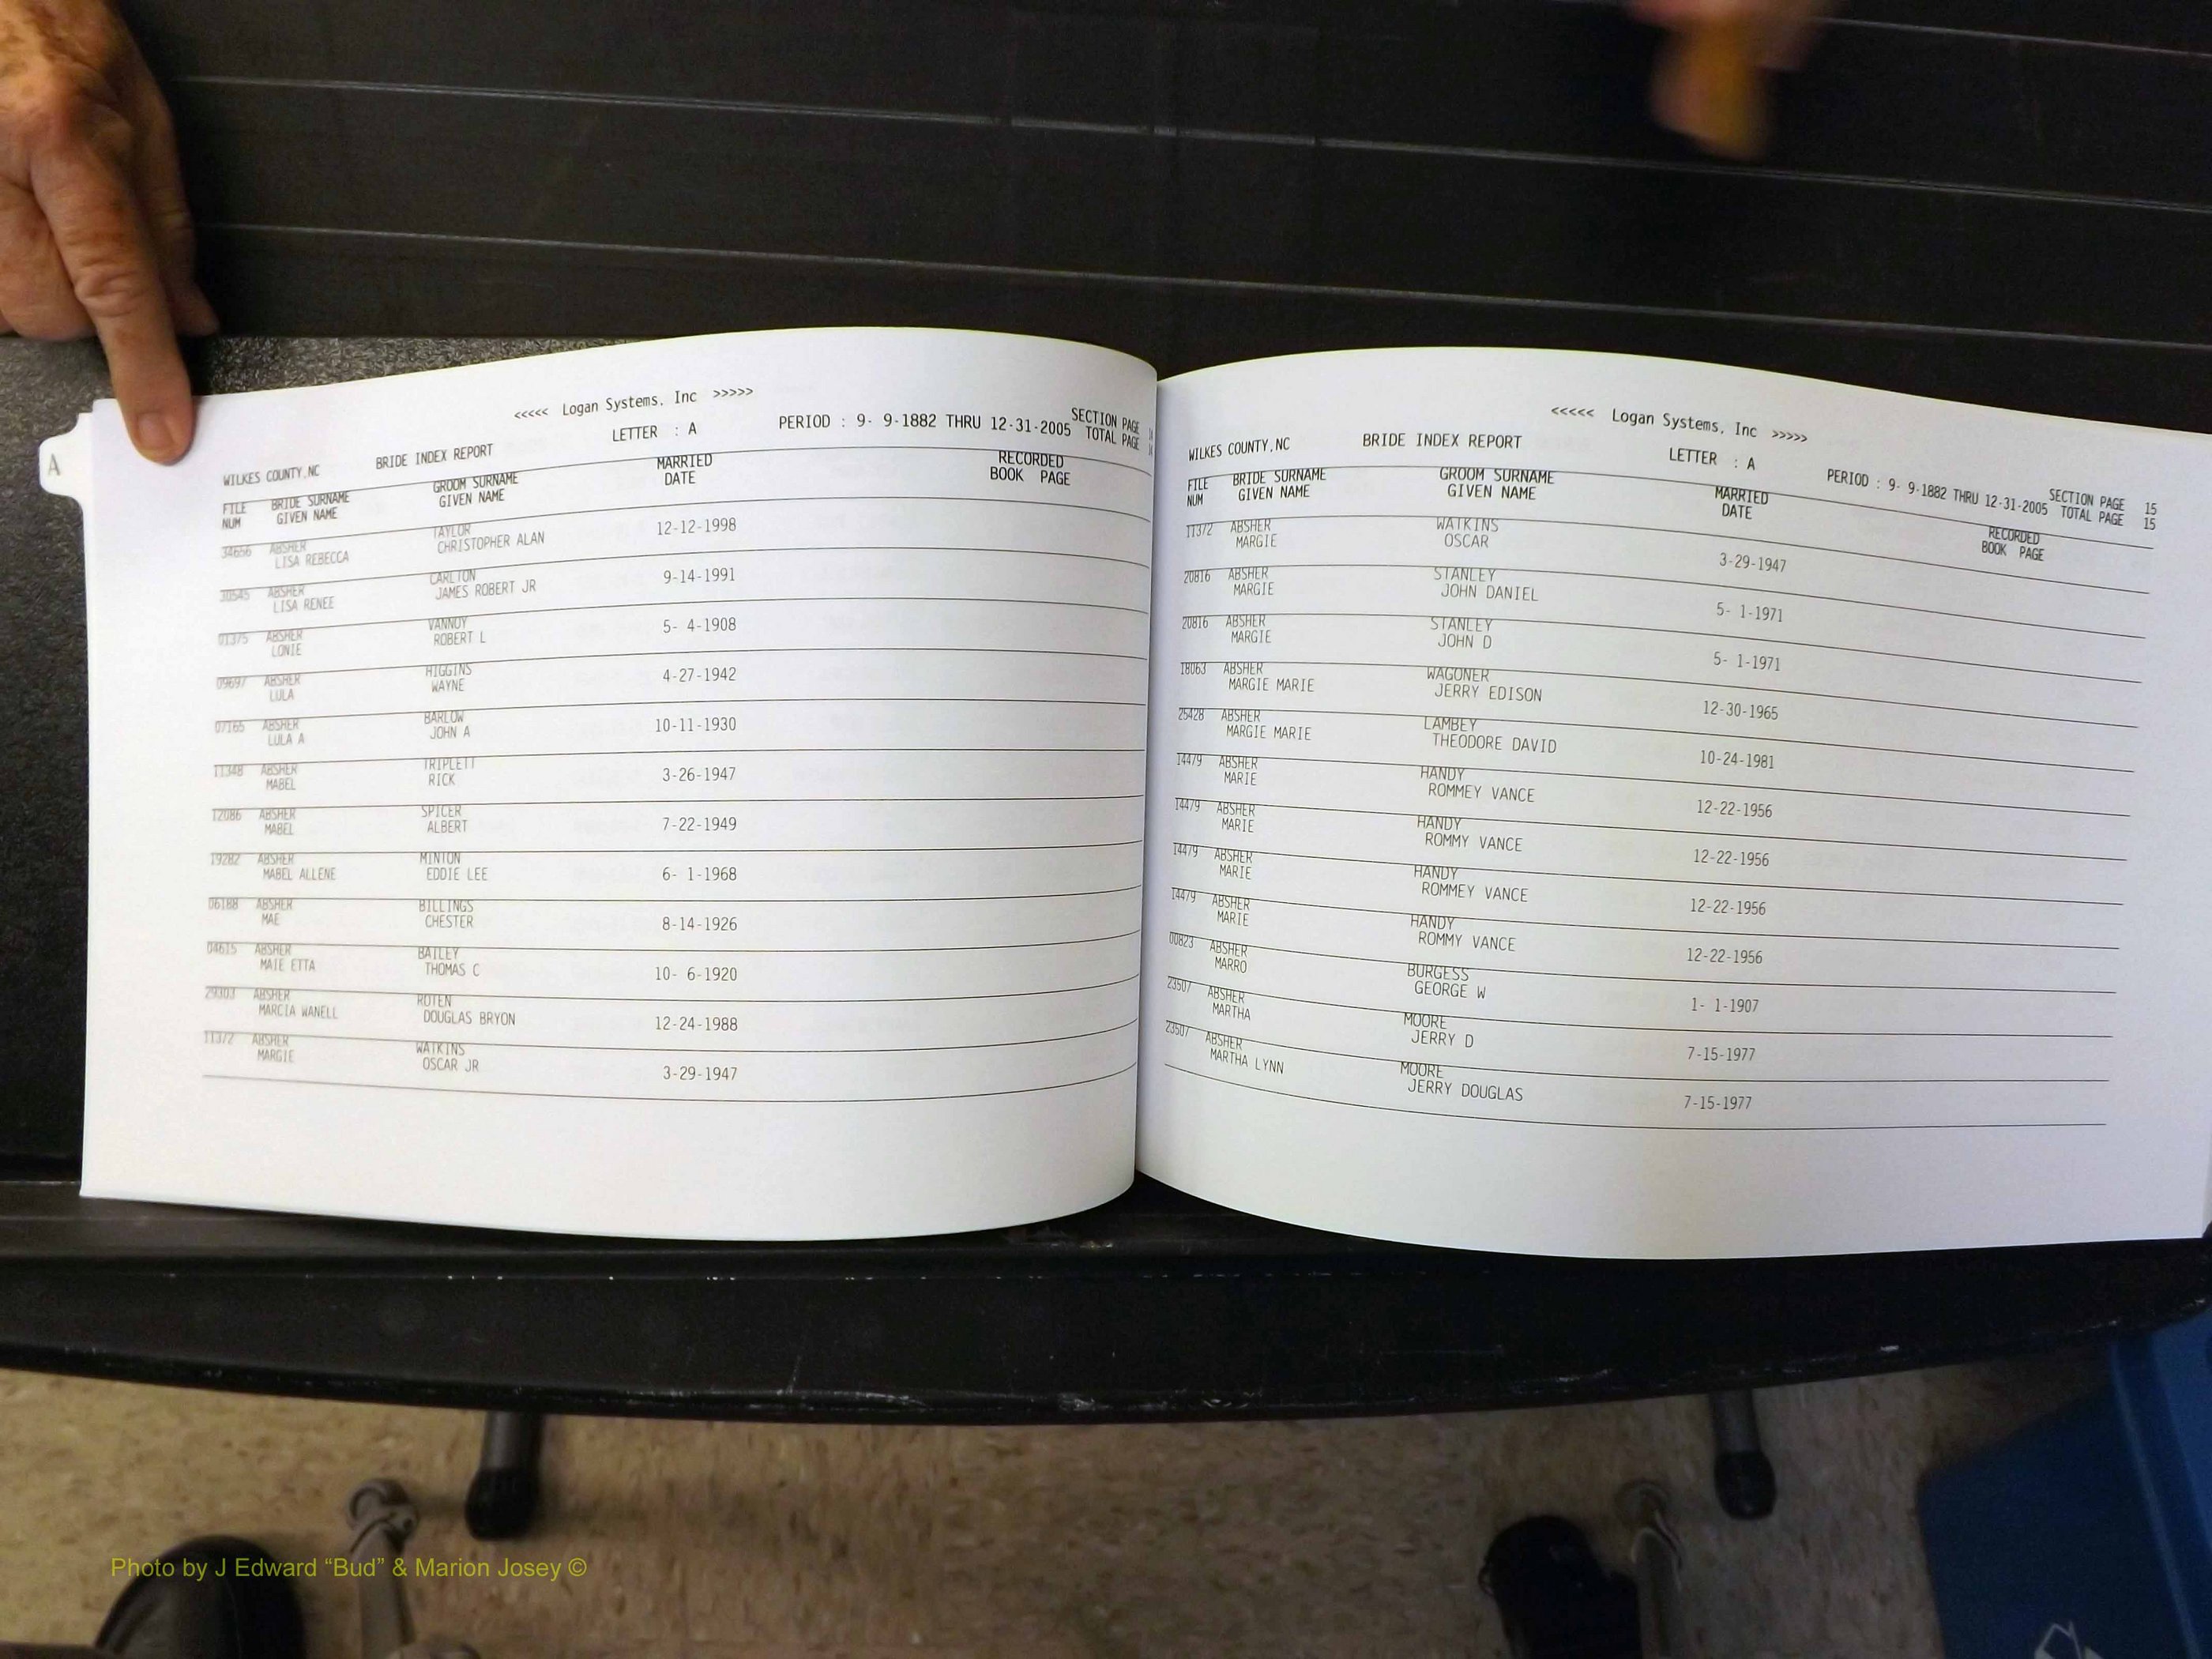 A
<<<<< Logan Systems, Inc >>>>>
WILKES COUNTY,NC BRIDE INDEX REPORT LETTER : A PERIOD : 9- 9-1882 THRU 12-31-2005 SECTION PAGE
TOTAL PAGE
FILE BRIDE SURNAME GROOM SURNAME MARRIED RECORDED
NUM GIVEN NAME GIVEN NAME DATE BOOK PAGE
34656 ABSHER TAYLOR 12-12-1998
LISA REBECCA CHRISTOPHER ALAN
30545 ABSHER CARLTON 9-14-1991
LISA RENEE JAMES ROBERT JR
01375 ABSHER VANNOY 5- 4-1908
LONIE ROBERT L
09697 ABSHER HIGGINS 4-27-1942
LULA WAYNE
07165 ABSHER BARLOW 10-11-1930
LULA A JOHN A
11348 ABSHER TRIPLETT 3-26-1947
MABEL RICK
12086 ABSHER SPICER 7-22-1949
MABEL ALBERT
19282 ABSHER MINTON 6- 1-1968
MABEL ALLENE EDDIE LEE
06188 ABSHER BILLINGS 8-14-1926
MAE CHESTER
04615 ABSHER BAILEY 10- 6-1920
MAIE ETTA THOMAS C
29303 ABSHER ROTEN 12-24-1988
MARCIA WANELL DOUGLAS BRYON
11372 ABSHER WATKINS 3-29-1947
MARGIE OSCAR JR
<<<<< Logan Systems, Inc >>>>>
WILKES COUNTY,NC BRIDE INDEX REPORT LETTER : A PERIOD : 9- 9-1882 THRU 12-31-2005 SECTION PAGE 15
TOTAL PAGE 15
FILE BRIDE SURNAME GROOM SURNAME MARRIED RECORDED
NUM GIVEN NAME GIVEN NAME DATE BOOK PAGE
11372 ABSHER WATKINS 3-29-1947
MARGIE OSCAR
20816 ABSHER STANLEY 5- 1-1971
MARGIE JOHN DANIEL
20816 ABSHER STANLEY 5- 1-1971
MARGIE JOHN D
18063 ABSHER WAGONER 12-30-1965
MARGIE MARIE JERRY EDISON
25428 ABSHER LAMBEY 10-24-1981
MARGIE MARIE THEODORE DAVID
14479 ABSHER HANDY 12-22-1956
MARIE ROMMEY VANCE
14479 ABSHER HANDY 12-22-1956
MARIE ROMMY VANCE
14479 ABSHER HANDY 12-22-1956
MARIE ROMMEY VANCE
14479 ABSHER HANDY 12-22-1956
MARIE ROMMY VANCE
00823 ABSHER BURGESS 1- 1-1907
MARRO GEORGE W
23507 ABSHER MOORE 7-15-1977
MARTHA JERRY D
23507 ABSHER MOORE 7-15-1977
MARTHA LYNN JERRY DOUGLAS
Photo by J Edward “Bud” & Marion Josey ©